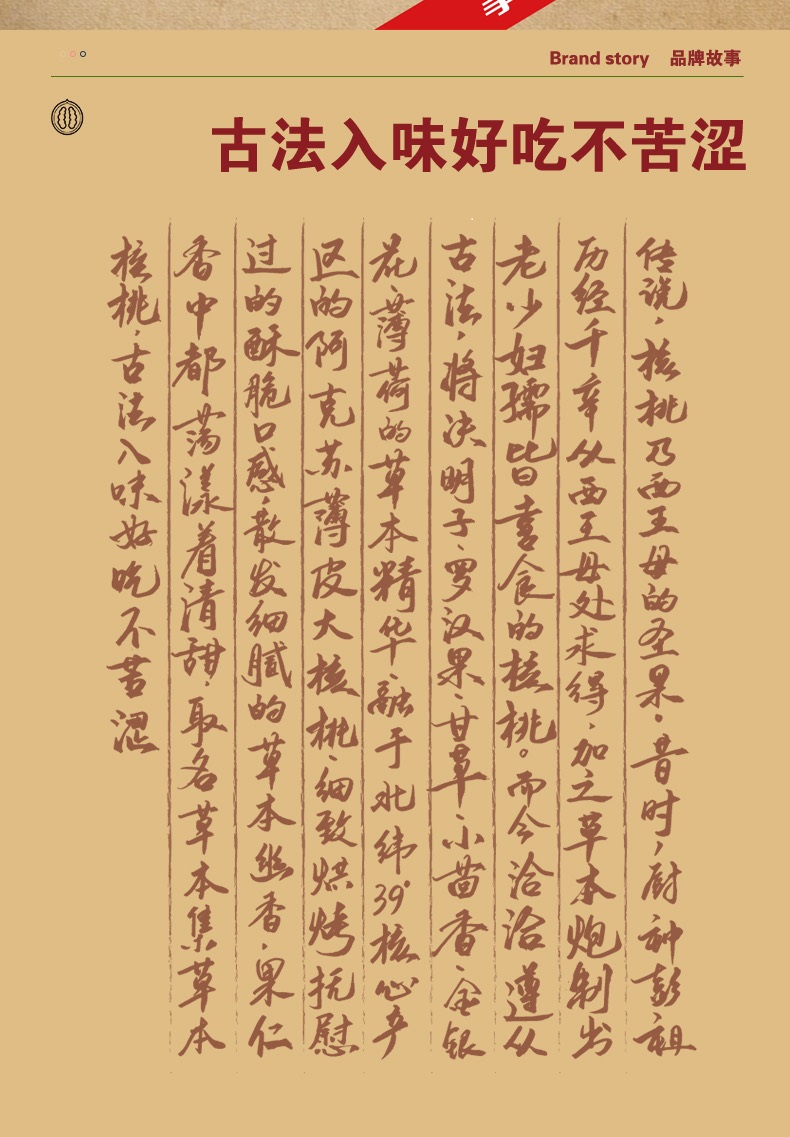 Brand story 品牌故事
古法入味好吃不苦涩
传说，核桃乃西王母的圣果。昔时，厨神彭祖
历经千辛从西王母处求得，加之草本炮制出
老少妇孺皆喜食的核桃。而今洽洽遵从
古法，将决明子、罗汉果、甘草、小茴香、金银
花、薄荷的草本精华、融于北纬39°核心产
区的阿克苏薄皮大核桃、细致烘烤抚慰
过的酥脆口感，散发细腻的草本幽香，果仁
香中都荡漾着清甜，取名草本集草本
核桃，古法入味好吃不苦涩